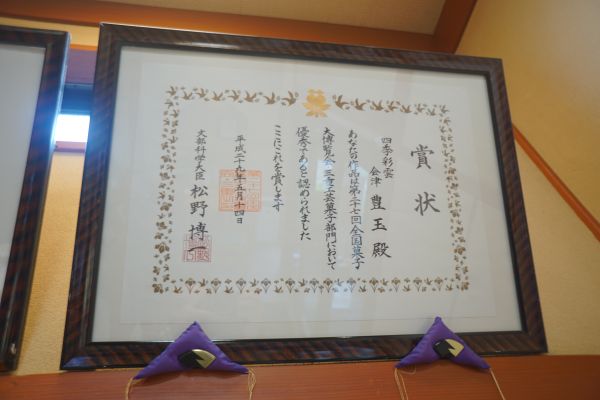 賞状
四季彩雲
会津 豊玉殿
あなたの作品は第二十七回全国菓子
大博覧会・三重工芸菓子部門において
優秀であると認められました
ここにこれを賞します
平成二十九年五月十四日
文部科学大臣 松野博一